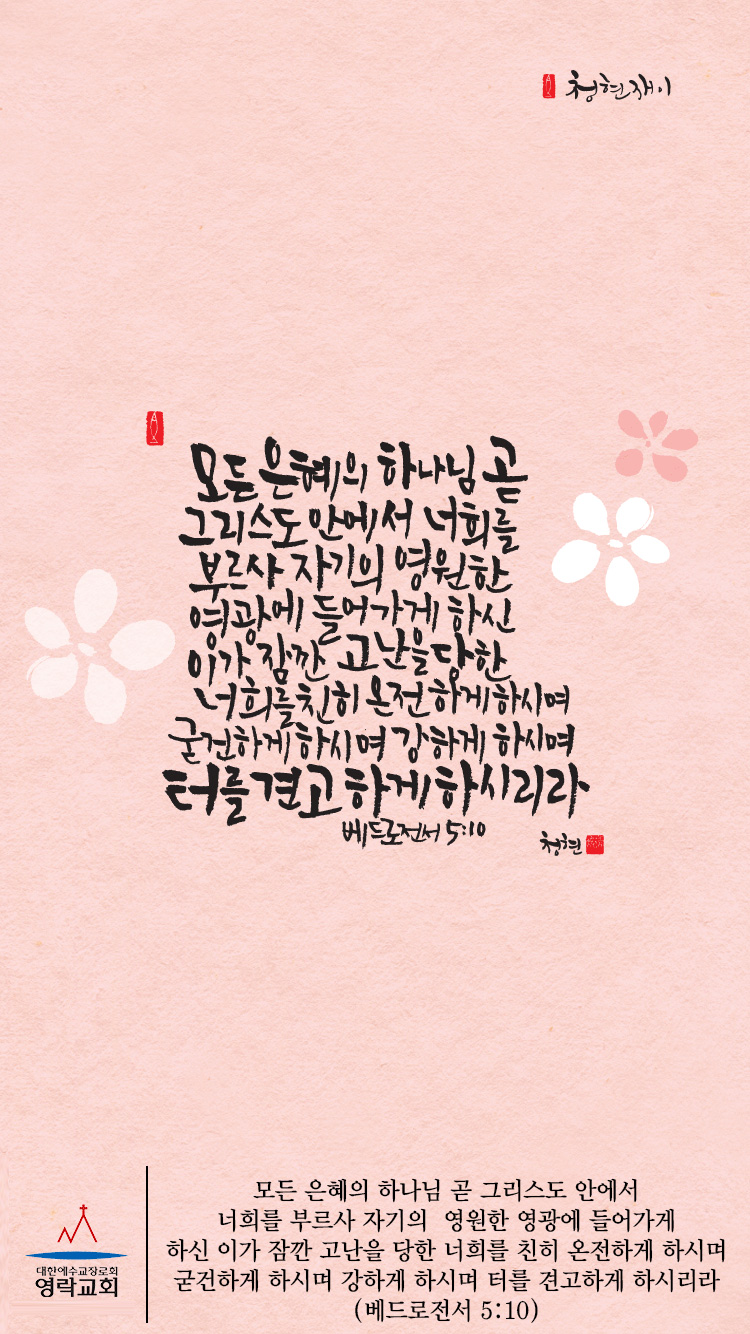 청현재이
모든 은혜의 하나님 곧
그리스도 안에서 너희를
부르사 자기의 영원한
영광에 들어가게 하신
이가 잠깐 고난을 당한
너희를 친히 온전하게 하시며
굳건하게 하시며 강하게 하시며
터를 견고하게 하시리라
베드로전서 5:10
청현
모든 은혜의 하나님 곧 그리스도 안에서
너희를 부르사 자기의 영원한 영광에 들어가게
하신 이가 잠깐 고난을 당한 너희를 친히 온전하게 하시며
굳건하게 하시며 강하게 하시며 터를 견고하게 하시리라
(베드로전서 5:10)
대한예수교장로회
영락교회